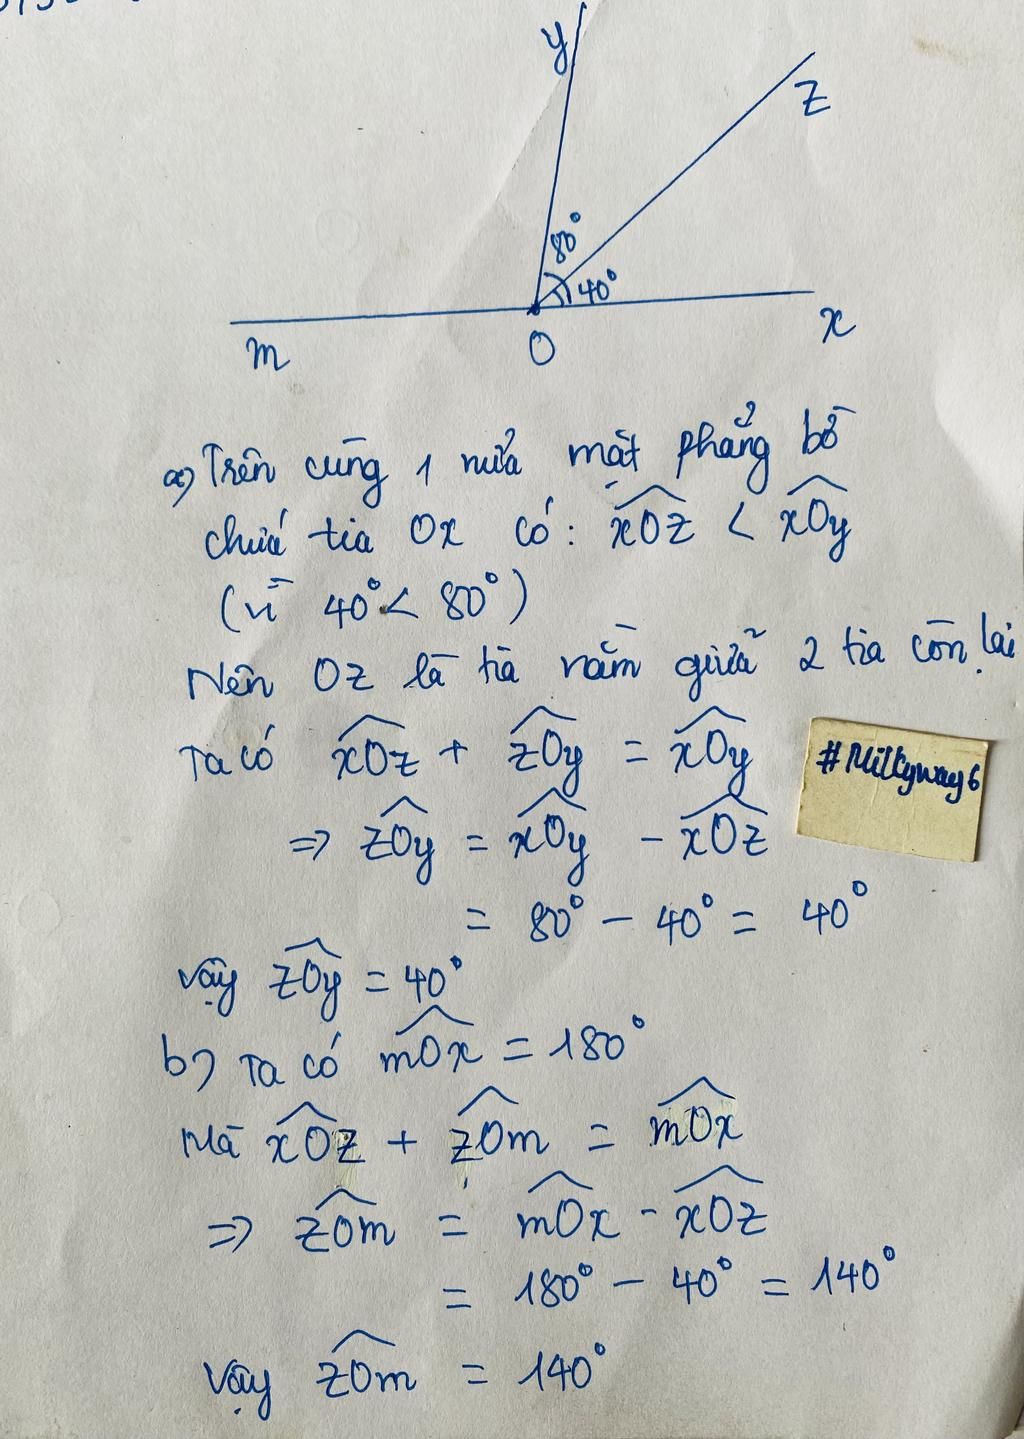 y
z
80°
40°
m
O
x
a) Trên cùng 1 nửa mặt phẳng bờ
chứa tia Ox có: xOz < xOy
(vì 40° < 80°)
Nên Oz là tia nằm giữa 2 tia còn lại
Ta có xOz + zOy = xOy
#Milkyway6
=> zOy = xOy - xOz
= 80° - 40° = 40°
Vậy zOy = 40°
b) Ta có mOx = 180°
Mà xOz + zOm = mOx
=> zOm = mOx - xOz
= 180° - 40° = 140°
Vậy zOm = 140°